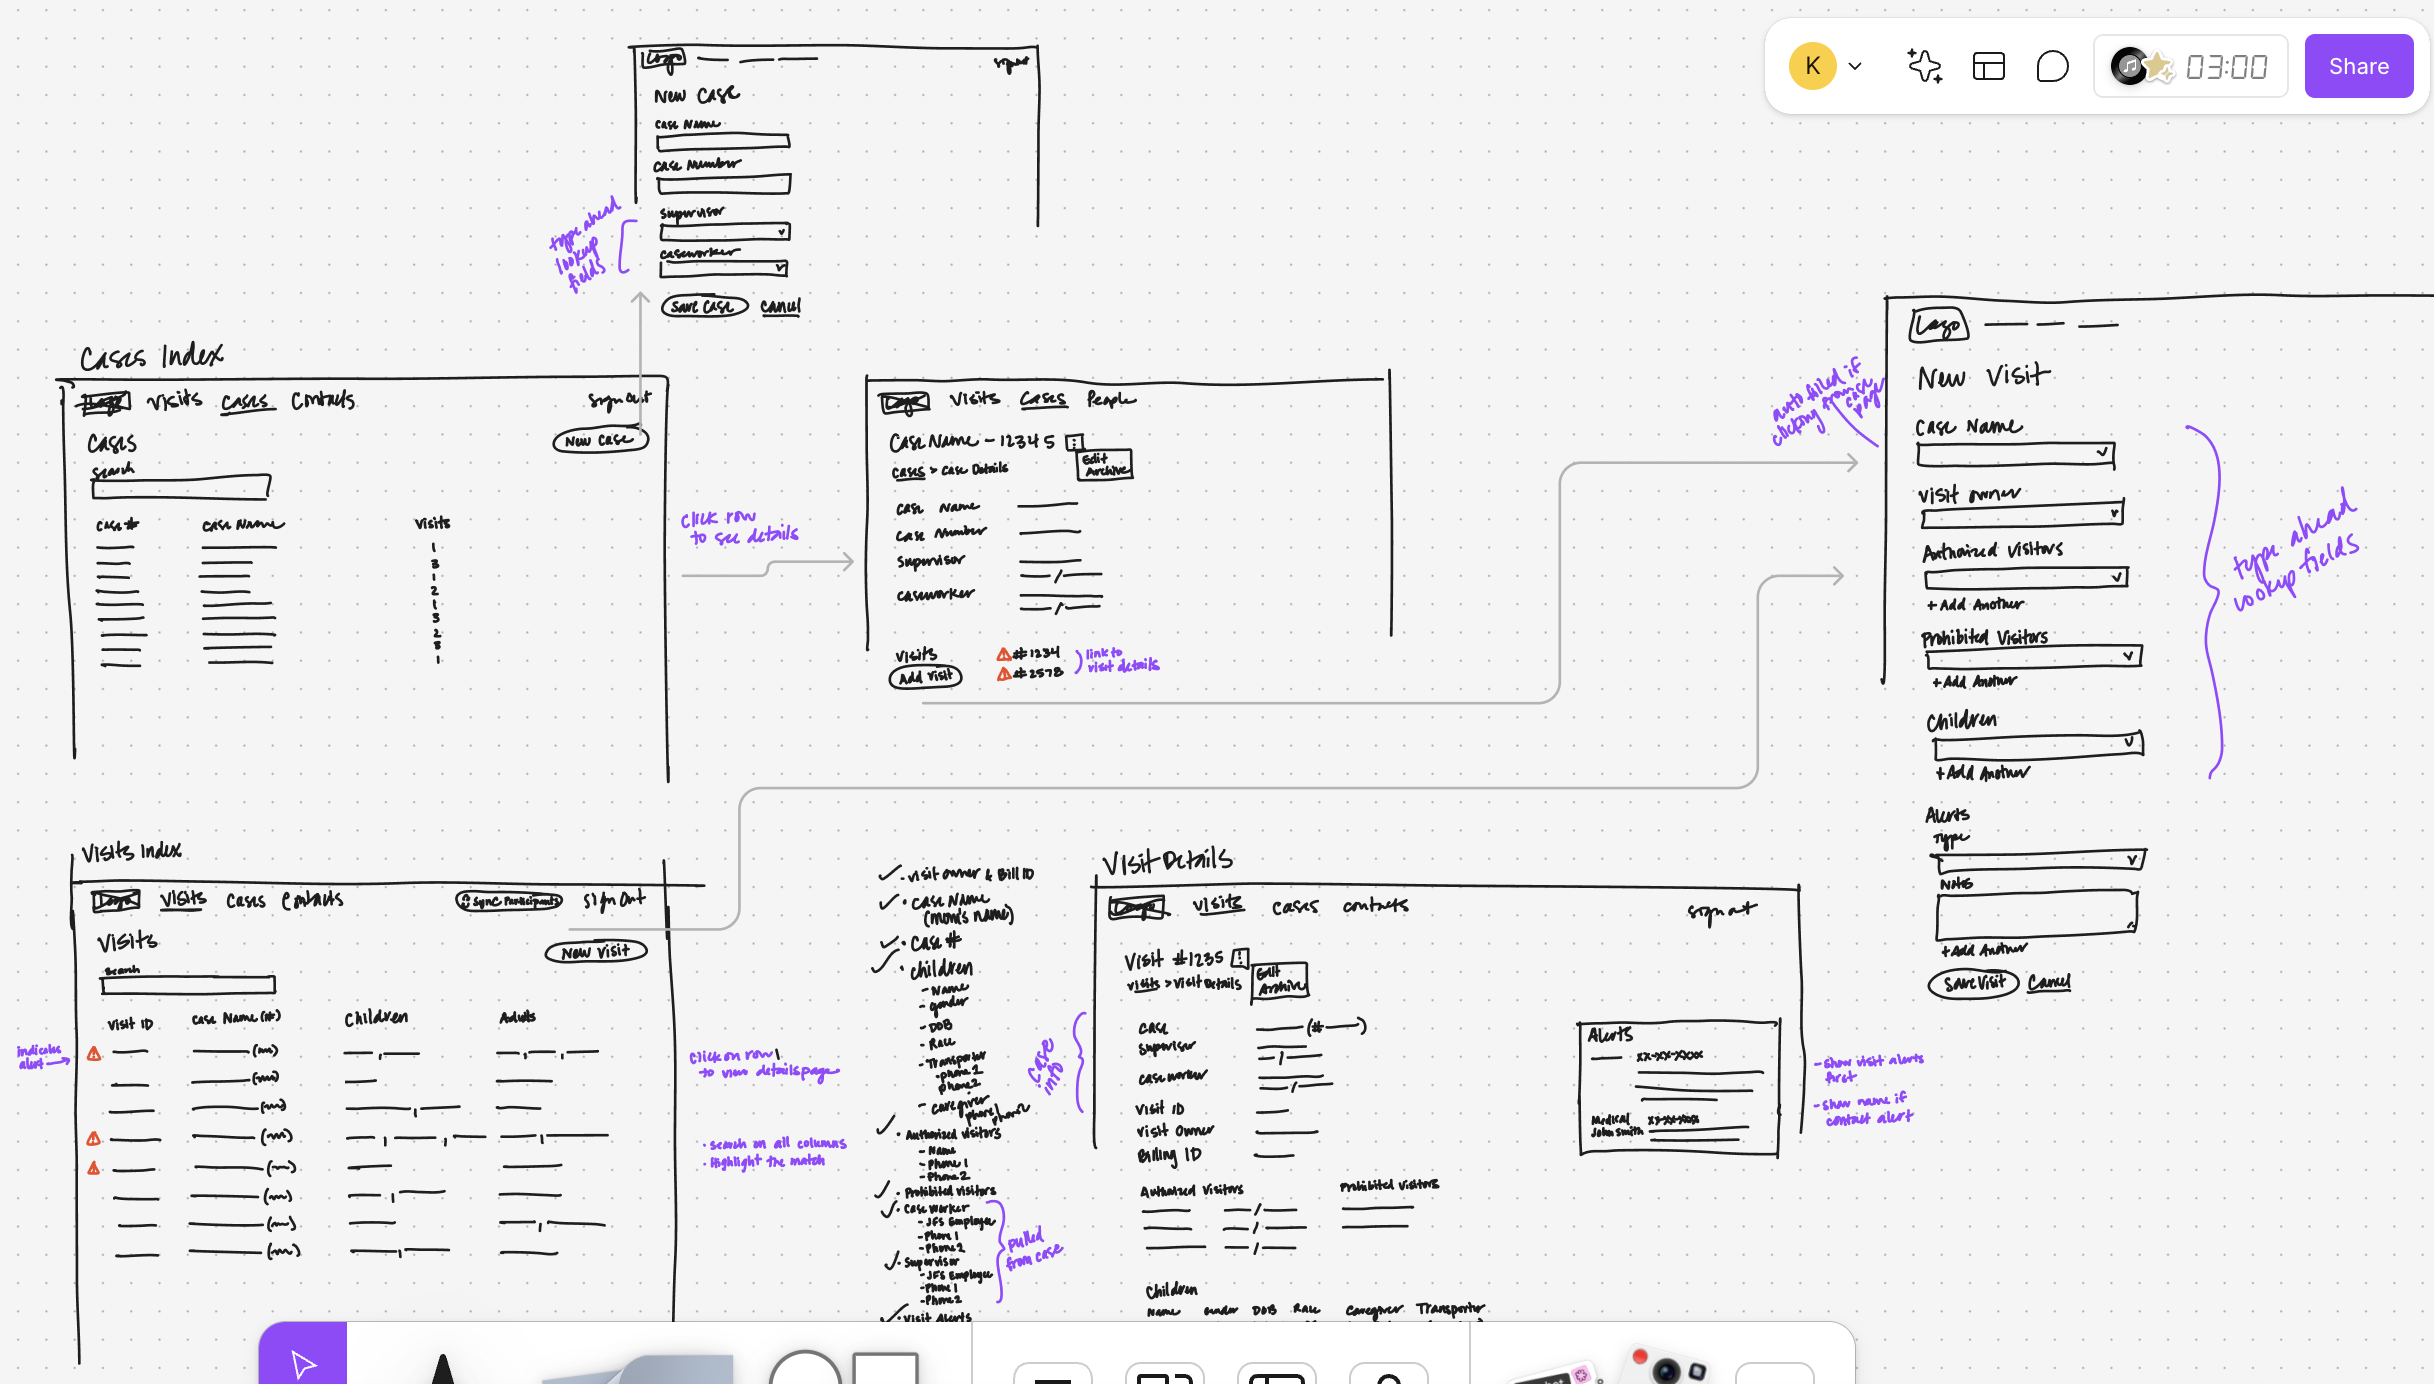 K
03:00
Share
Logo
Sign out
New Case
Case Name
Case Number
Supervisor
Caseworker
Save Case
Cancel
type ahead
lookup
fields
Cases Index
Logo
Visits
Cases
Contacts
Sign Out
Cases
New Case
Search
Case #
Case Name
Visits
1
3
1
2
1
3
2
3
1
Click row
to see details
Logo
Visits
Cases
People
Case Name - 12345
Edit
Archive
Cases > Case Details
Case Name
Case Number
Supervisor
/
Caseworker
/
Visits
Add Visit
#1234
#2578
link to
visit details
Logo
New Visit
auto filled if
clicking from
case
page
Case Name
Visit owner
Authorized Visitors
+ Add Another
Prohibited Visitors
+ Add Another
Children
+ Add Another
type ahead
lookup fields
Alerts
Type
Notes
+ Add Another
Save Visit
Cancel
Visits Index
Logo
Visits
Cases
Contacts
Sync Participants
Sign Out
Visits
New Visit
Search
Visit ID
Case Name (#)
Children
Adults
indicates
alert
Click on row
to view details page
• search on all columns
• Highlight the match
• visit owner & Bill ID
• Case Name
(mom's name)
• Case #
• Children
- Name
- gender
- DOB
- Race
- Transporter
• phone 1
phone 2
- Caregiver
phone 1 phone 2
• Authorized visitors
- Name
- Phone 1
- Phone 2
• Prohibited visitors
• Case Worker
- JFS Employee
- Phone 1
- Phone 2
• Supervisor
- JFS Employee
- Phone 1
- Phone 2
• Visit Alerts
pulled
from case
Visit Details
Logo
Visits
Cases
Contacts
Sign out
Visit #1235
Edit
Archive
Visits > Visit Details
case
info
Case
(# )
Supervisor
/
Caseworker
/
Visit ID
Visit Owner
Billing ID
Alerts
xx-xx-xxxx
Medical
xx-xx-xxxx
John Smith
- show visit alerts
first
- show name if
contact alert
Authorized Visitors
Prohibited Visitors
/
/
/
Children
Name
Gender
DOB
Race
Caregiver
Transporter